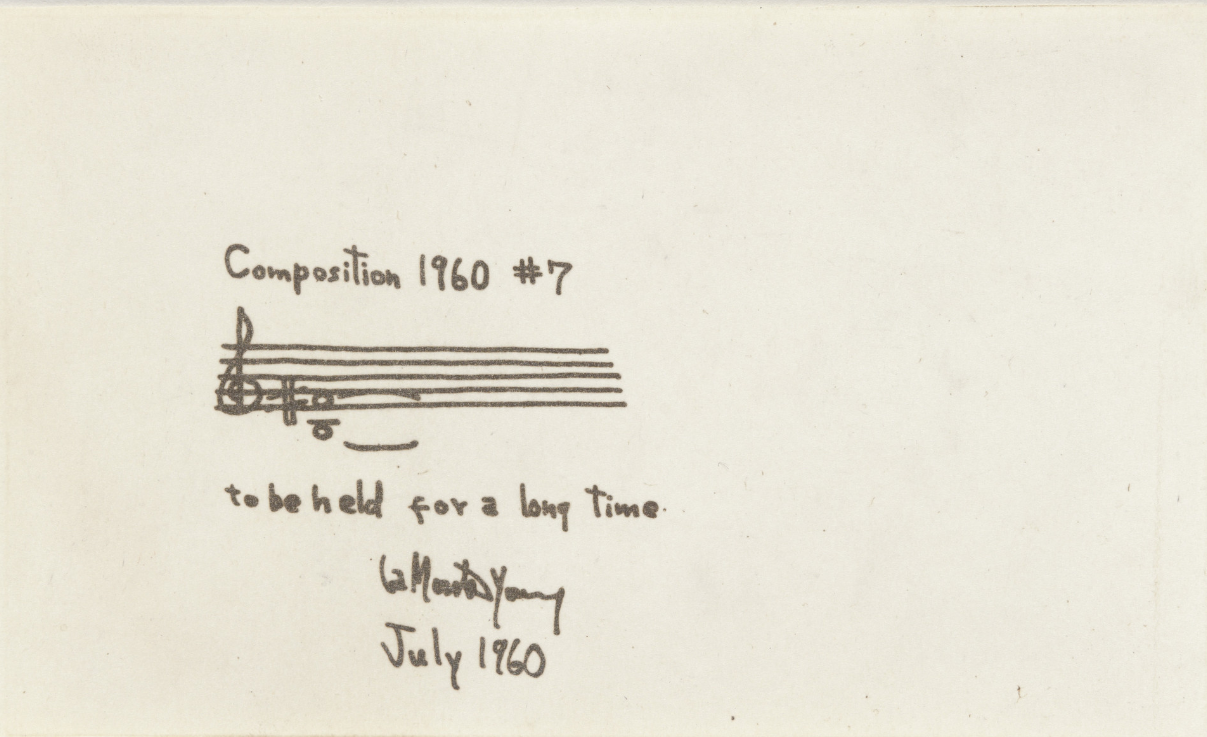 Composition 1960 #7
to be held for a long time
La Monte Young
July 1960